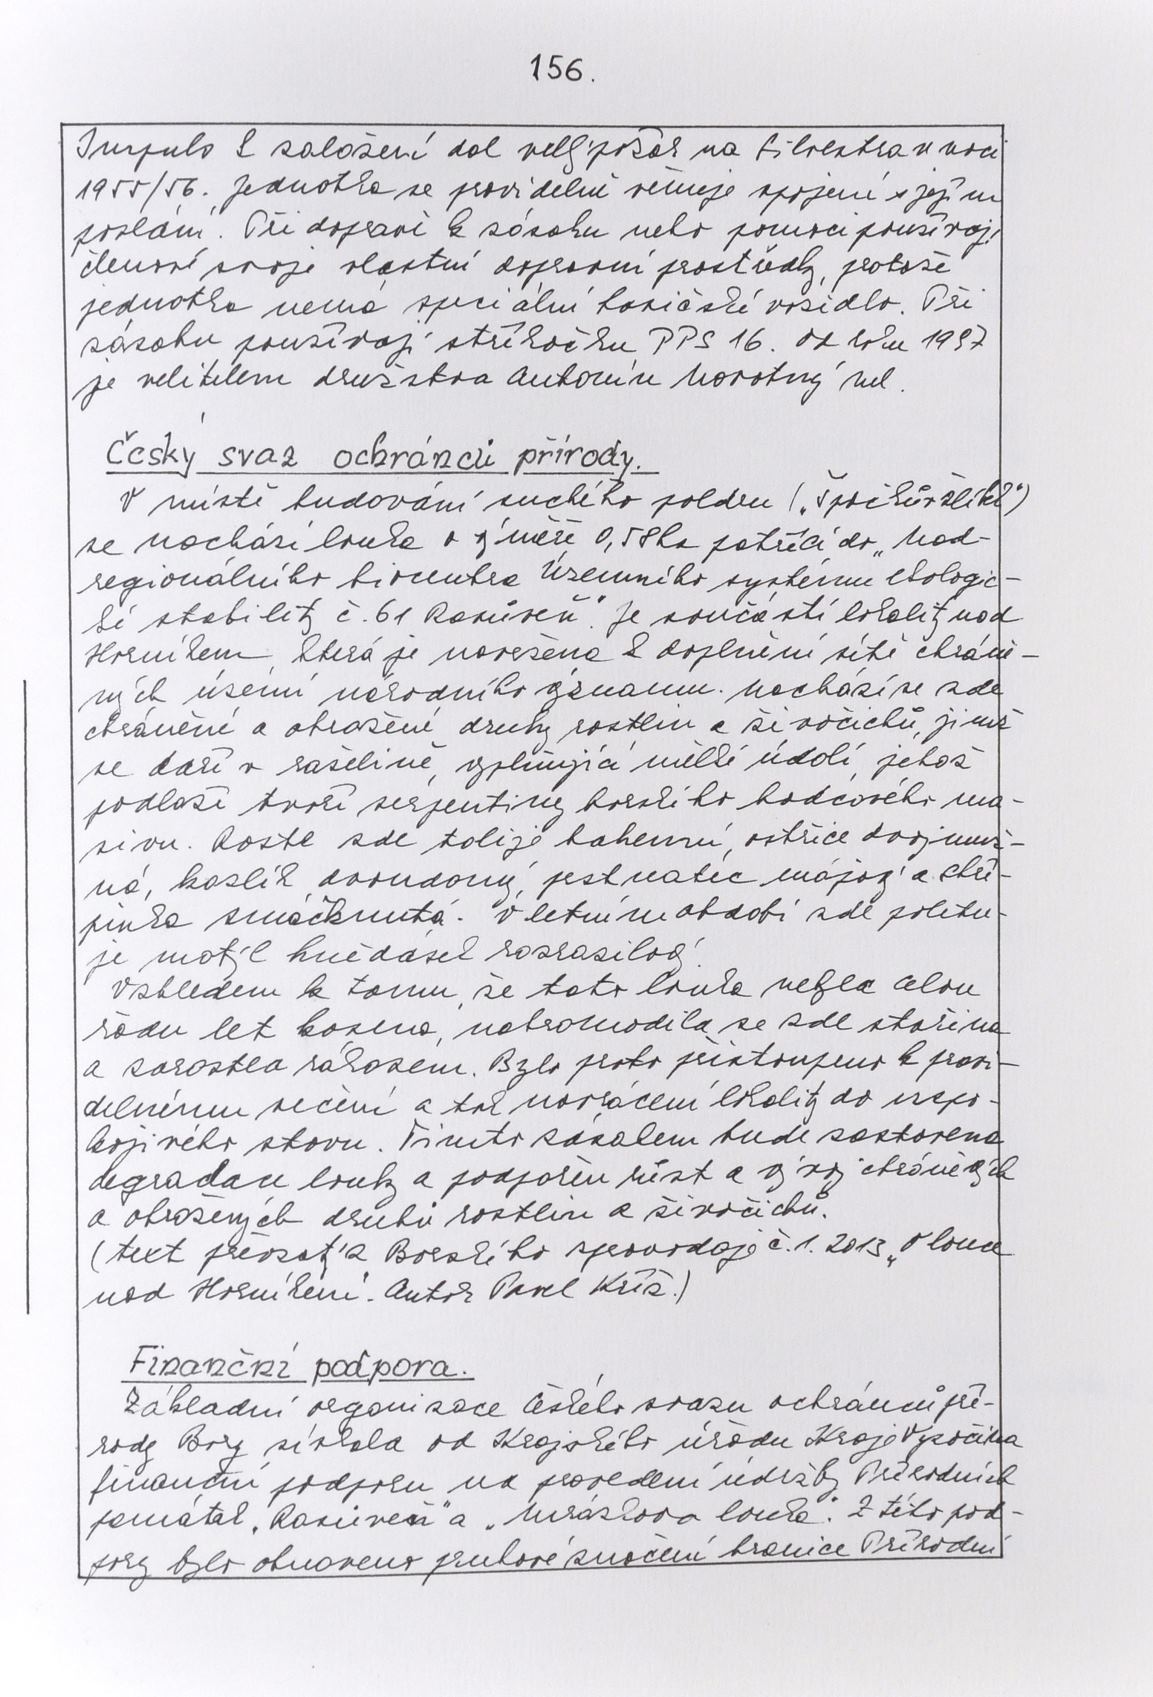 156.
Impuls k založení dal velký požár na Silvestra v noci
1955/56. Jednotka se pravidelně věnuje spojení s jejím
poslání. Při dopravě k zásahu nebo pomoci používají
členové svoje vlastní dopravní prostředky, protože
jednotka nemá speciální hasičské vozidlo. Při
zásahu používají stříkačku PPS 16. Od roku 1997
je velitelem družstva Antonín Novotný ml.
Český svaz ochránců přírody.
V místě budování suchého poldru („Špačkův žlíbek")
se nachází louka o výměře 0,58ha patřící do „Nad-
regionálního biocentra Územního systému ekologic-
ké stability č. 61 Rasůveň". Je součástí lokality nad
Horníkem, která je navržena k doplnění sítě chráně-
ných území národního významu. Nachází se zde
chráněné a ohrožené druhy rostlin a živočichů, jimž
se daří v rašelině, vyplňující mělké údolí, jehož
podloží tvoří serpentiny borského hadcového ma-
sivu. Roste zde tolije bahenní, ostřice dvojmuž-
ná, kozlík dvoudomý, prstnatec májový a skří-
pinka smáčknutá. V letním období zde poletu-
je motýl hnědásek rozrazilový.
Vzhledem k tomu, že tato louka nebyla celou
řadu let kosena, nahromadila se zde stařina
a zarostla rákosem. Bylo proto přistoupeno k pravi-
delnému sečení a tak navrácení lokality do uspo-
kojivého stavu. Tímto zásahem bude zastavena
degradace louky a podpořen růst a vývoj chráněných
a ohrožených druhů rostlin a živočichů.
(text převzatý z Borského zpravodaje č. 1. 2013 „O louce
nad Horníkem". Autor Pavel Kříž.)
Finanční podpora.
Základní organizace Českého svazu ochránců pří-
rody Bory získala od Krajského úřadu Kraje Vysočina
finanční podporu na provedení údržby Přírodních
památek „Rasůveň" a „Mrázkova louka". Z této pod-
pory bylo obnoveno pruhové značení hranice Přírodní